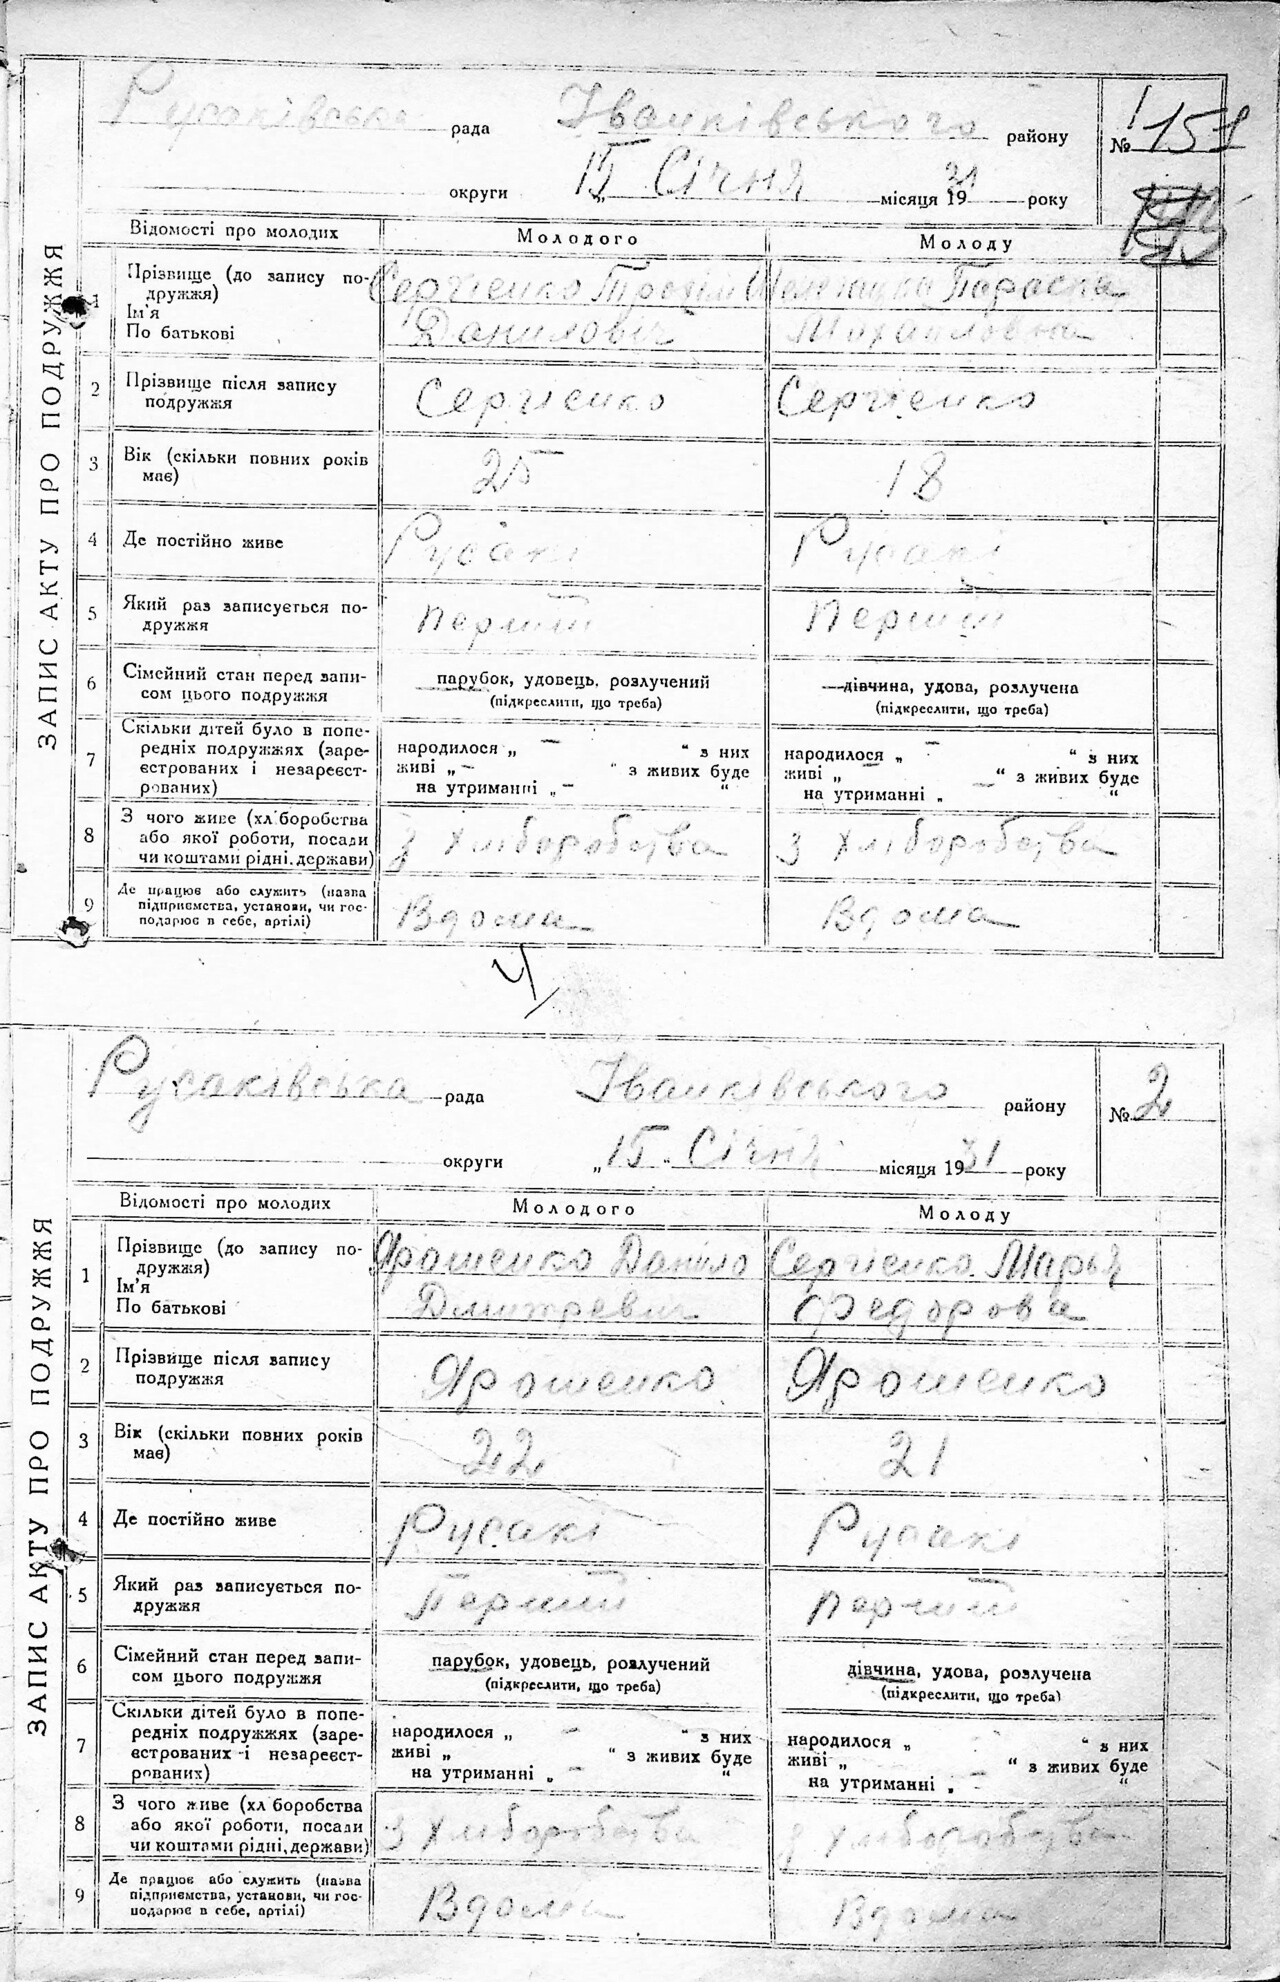 ЗАПИС АКТУ ПРО ПОДРУЖЖЯ
Русаківська рада Іванківського району
№ 1 151
округи „15 Січня місяця 1931 року
Відомості про молодих Молодого Молоду
1 Прізвище (до запису подружжя) Ім'я По батькові
Сергієнко Трохім
Данилович
Параска
Михайловна
2 Прізвище після запису подружжя
Сергієнко Сергієнко
3 Вік (скільки повних років має)
25 18
4 Де постійно живе
Русакі Русакі
5 Який раз записується подружжя
перший перший
6 Сімейний стан перед записом цього подружжя
парубок, удовець, розлучений
(підкреслити, що треба)
дівчина, удова, розлучена
(підкреслити, що треба)
7 Скільки дітей було в попередніх подружжях (зареєстрованих і незареєстрованих)
народилося „ – “ з них
живі „ – “ з живих буде
на утриманні „ – “
народилося „ – “ з них
живі „ – “ з живих буде
на утриманні „ – “
8 З чого живе (хліборобства або якої роботи, посади чи коштами рідні, держави)
з Хліборобства з Хліборобства
9 Де працює або служить (назва підприємства, установи, чи господарює в себе, артілі)
Вдома Вдома
ЗАПИС АКТУ ПРО ПОДРУЖЖЯ
Русаківська рада Іванківського району
№ 2
округи „15„ Січня місяця 1931 року
Відомості про молодих Молодого Молоду
1 Прізвище (до запису подружжя) Ім'я По батькові
Ярошенко Даніло
Дмитревич
Сергієнко Марья
Федорова
2 Прізвище після запису подружжя
Ярошенко Ярошенко
3 Вік (скільки повних років має)
22 21
4 Де постійно живе
Русакі Русакі
5 Який раз записується подружжя
Перший перший
6 Сімейний стан перед записом цього подружжя
парубок, удовець, розлучений
(підкреслити, що треба)
дівчина, удова, розлучена
(підкреслити, що треба)
7 Скільки дітей було в попередніх подружжях (зареєстрованих і незареєстрованих)
народилося „ – “ з них
живі „ “ з живих буде
на утриманні „ – “
народилося „ – “ з них
живі „ “ з живих буде
на утриманні „ – “
8 З чого живе (хліборобства або якої роботи, посади чи коштами рідні, держави)
з Хліборобства з Хліборобства
9 Де працює або служить (назва підприємства, установи, чи господарює в себе, артілі)
Вдома Вдома